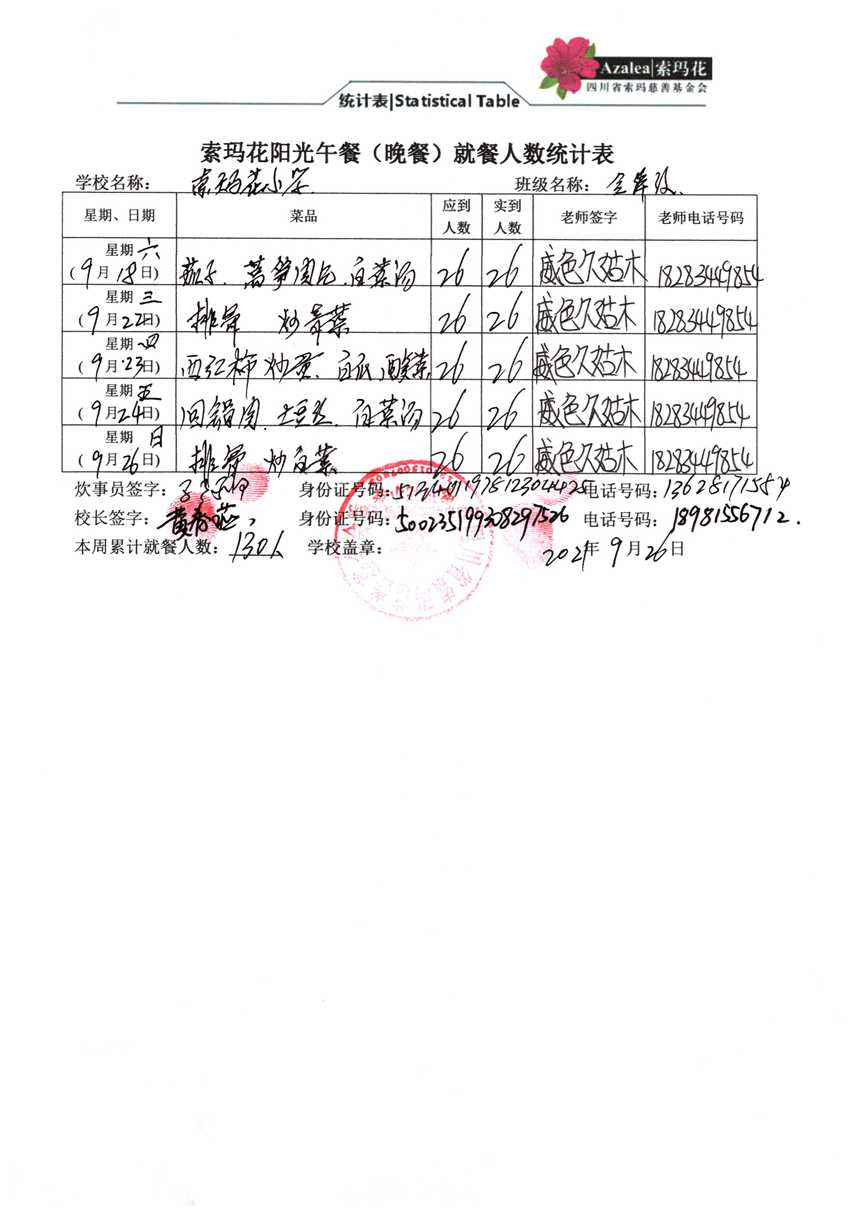 Azalea|索玛花
四川省索玛慈善基金会
统计表|Statistical Table
索玛花阳光午餐（晚餐）就餐人数统计表
学校名称： 索玛花小学 班级名称： 全年级
星期、日期 菜品 应到人数 实到人数 老师签字 老师电话号码
星期六 (9月18日) 茄子、莴笋肉片、白菜汤 26 26 威色久姑木 18283449854
星期三 (9月22日) 排骨 炒青菜 26 26 威色久姑木 18283449854
星期四 (9月23日) 西红柿炒蛋、白瓜、酸菜 26 26 威色久姑木 18283449854
星期五 (9月24日) 回锅肉、土豆丝、白菜汤 26 26 威色久姑木 18283449854
星期日 (9月26日) 排骨 炒白菜 26 26 威色久姑木 18283449854
炊事员签字： 身份证号码： 电话号码：13628171584
校长签字： 身份证号码：500235199308297526 电话号码：18981556712.
本周累计就餐人数：130人 学校盖章： 2021年9月26日